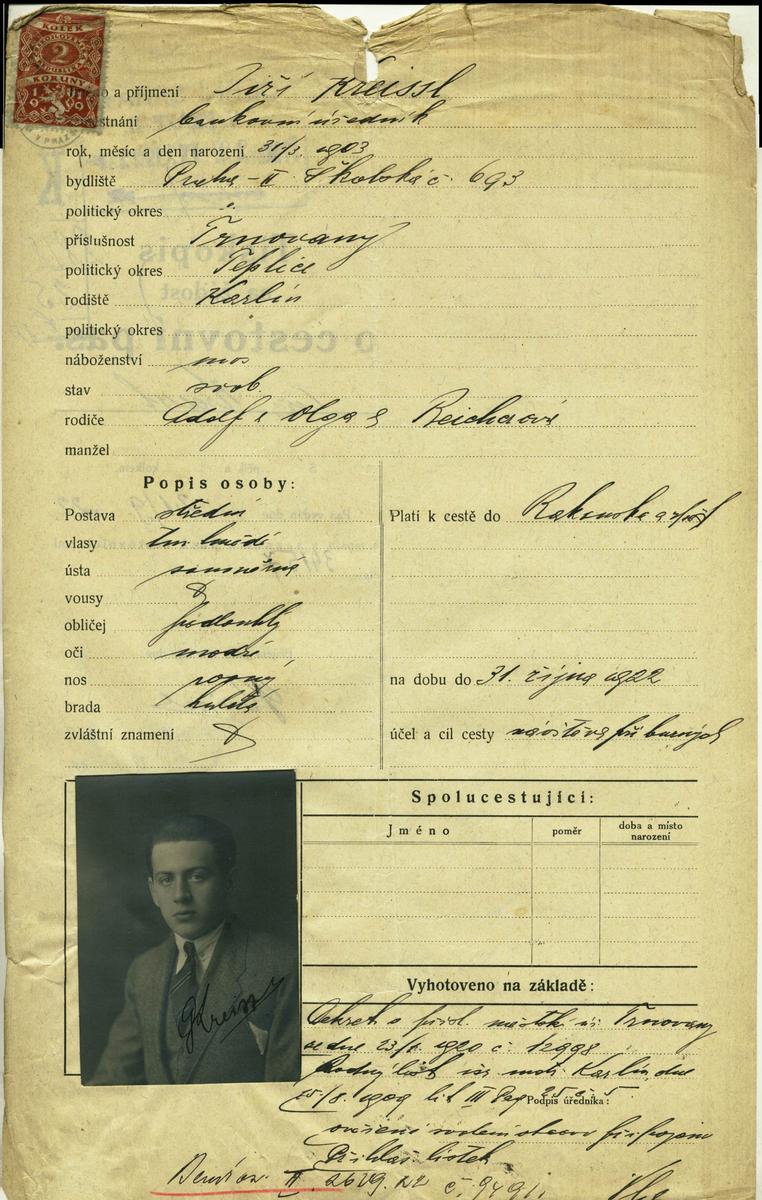 KOLEK
2
KORUNY
a příjmení Jiří Kreissl
bankovní úředník
rok, měsíc a den narození 31/3. 1903
bydliště Praha – II Školská č. 693
politický okres
příslušnost Trnovany
politický okres Teplice
rodiště Karlín
politický okres
náboženství mos
stav svob.
rodiče Adolf a Olga
manžel
Popis osoby:
Postava střední
vlasy tm. hnědé
ústa souměrná
vousy
obličej podlouhlý
oči modré
nos rovný
brada kulatá
zvláštní znamení
Platí k cestě do Rakouska a zpět
na dobu do 31. října 1922
účel a cíl cesty návštěva příbuzných
Spolucestující:
Jméno
poměr
doba a místo narození
Vyhotoveno na základě:
Dekret o přísl. Trnovany
ze dne 1920 č. 12998
Rodný list Karlín dne
1909 III
Podpis úředníka:
II. 26/9. 22 č. 9491.